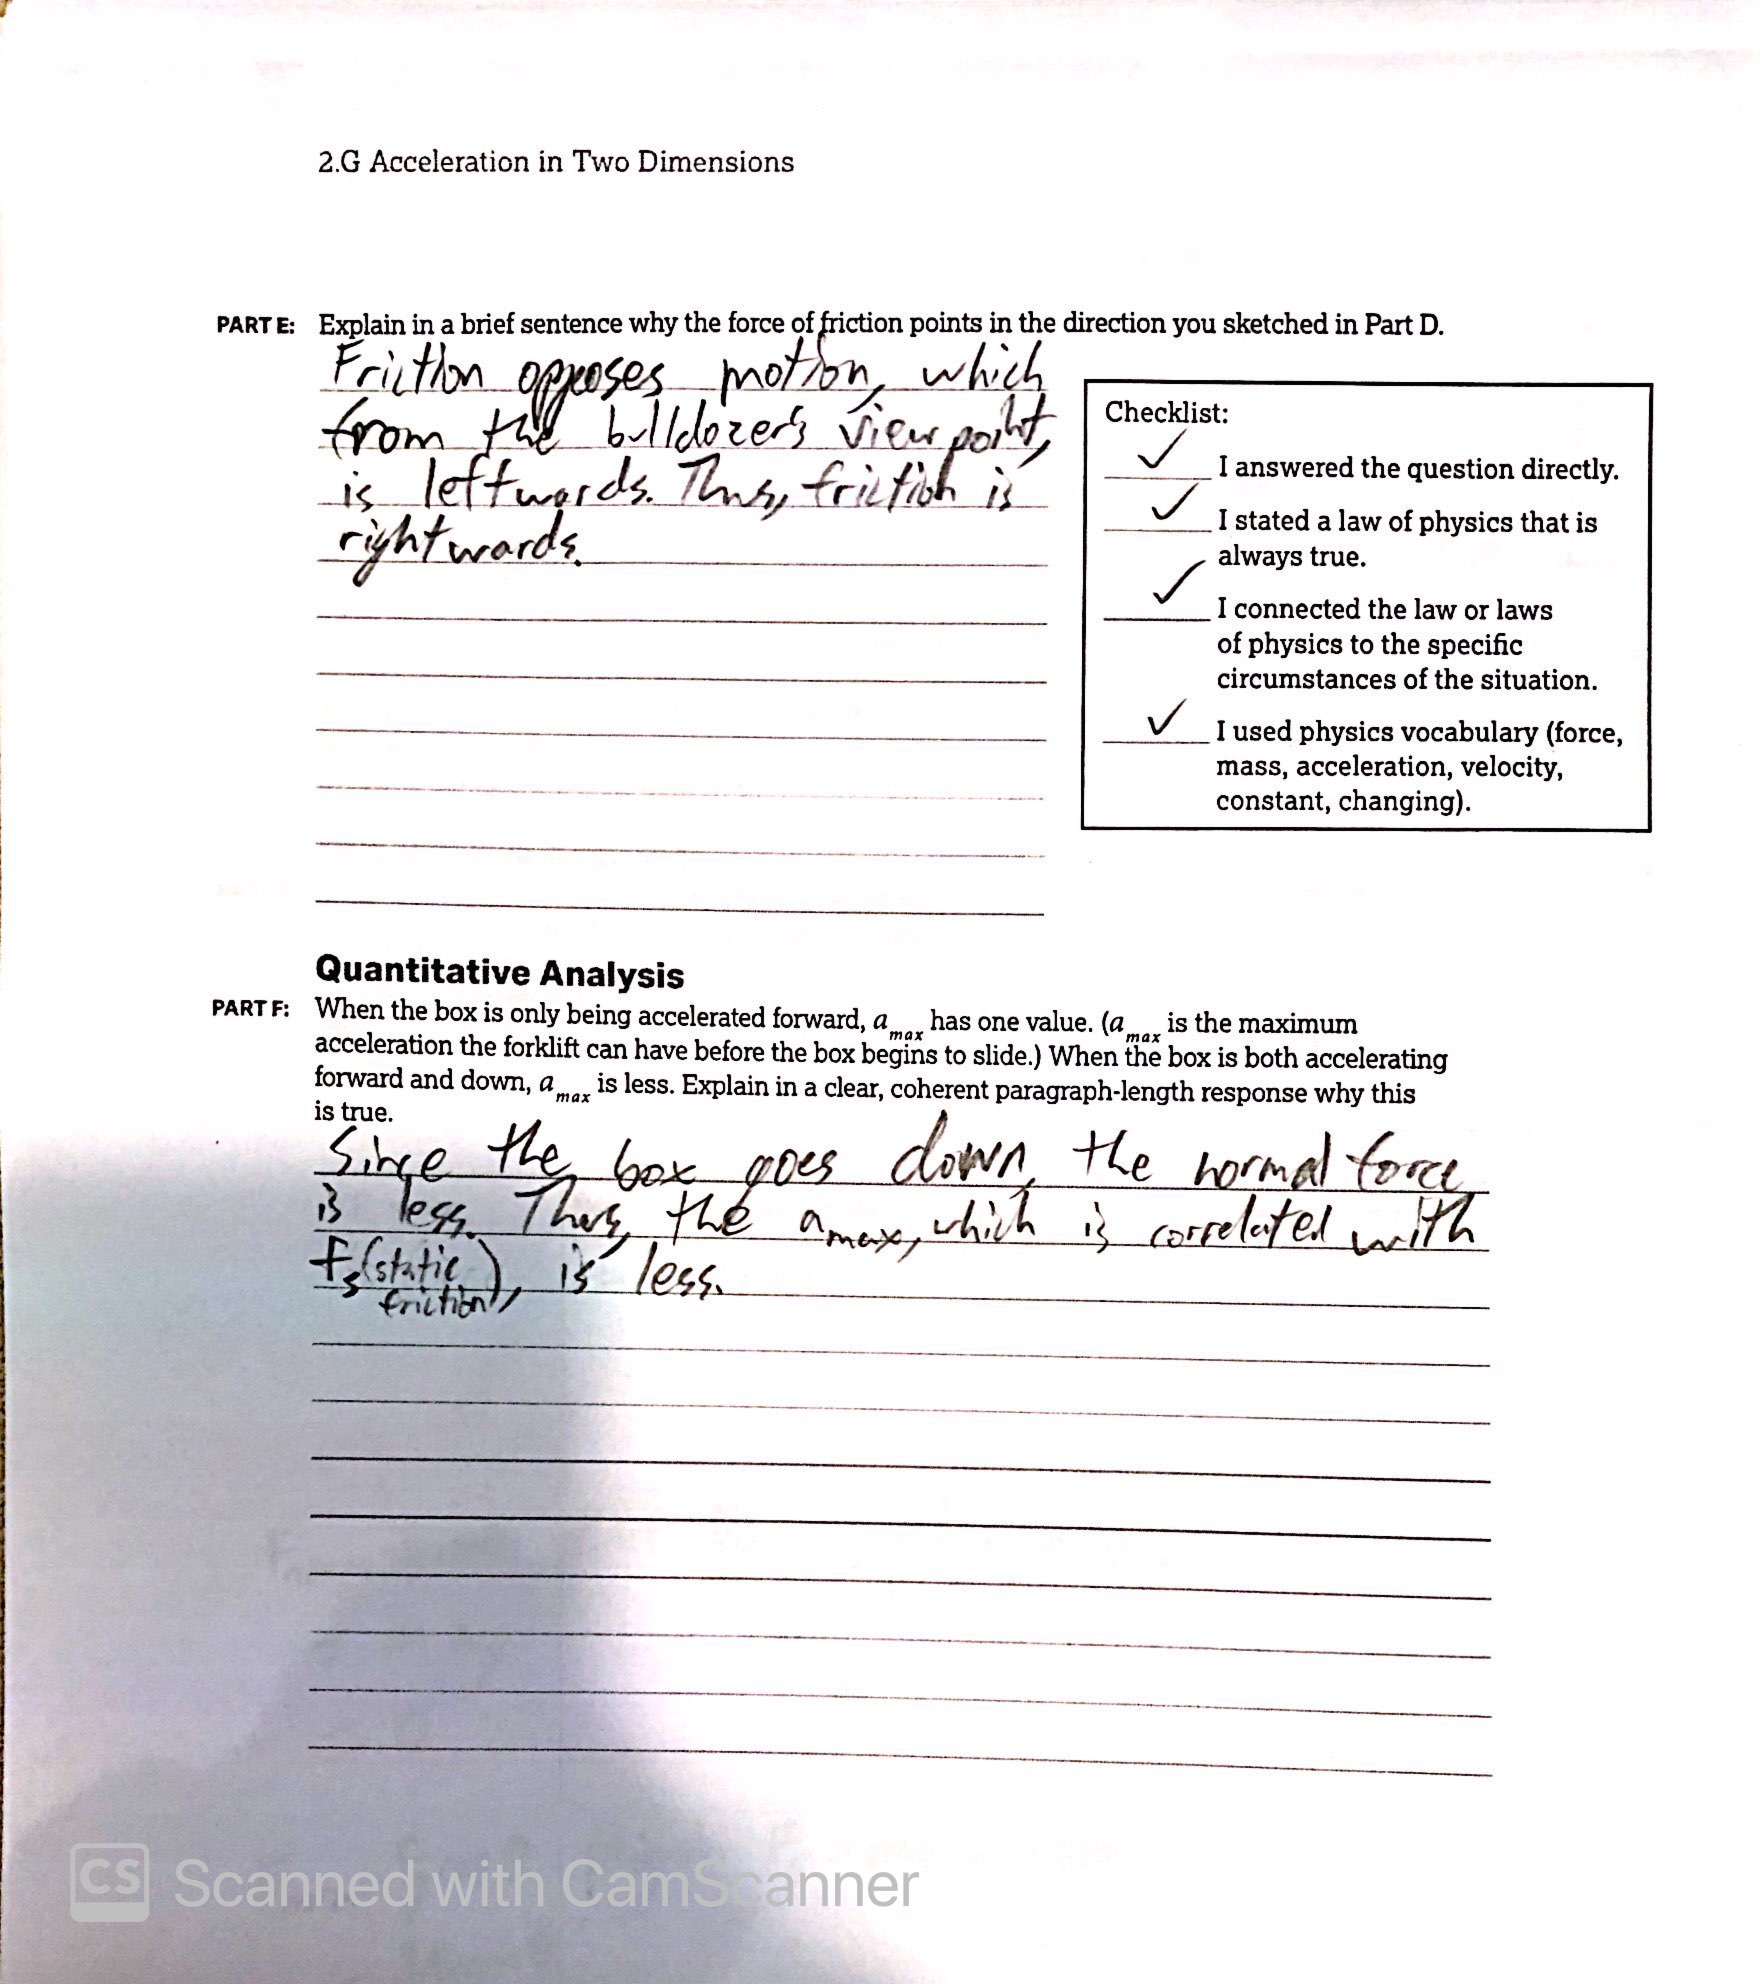 2.G Acceleration in Two Dimensions
PART E: Explain in a brief sentence why the force of friction points in the direction you sketched in Part D.
Friction opposes motion, which
from the bulldozer's viewpoint,
is leftwards. Thus, friction is
rightwards.
Checklist:
I answered the question directly.
I stated a law of physics that is
always true.
I connected the law or laws
of physics to the specific
circumstances of the situation.
I used physics vocabulary (force,
mass, acceleration, velocity,
constant, changing).
Quantitative Analysis
PART F: When the box is only being accelerated forward, a_max has one value. (a_max is the maximum
acceleration the forklift can have before the box begins to slide.) When the box is both accelerating
forward and down, a_max is less. Explain in a clear, coherent paragraph-length response why this
is true.
Since the box goes down, the normal force
is less. Thus, the a_max, which is correlated with
f_s (static friction), is less.
CS Scanned with CamScanner